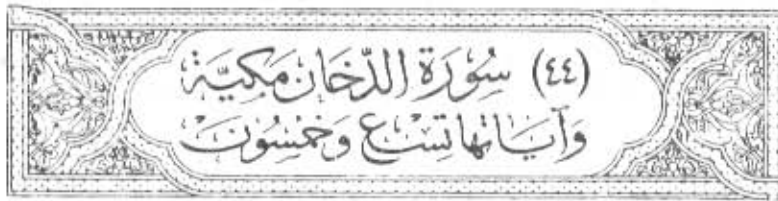 (٤٤) سُورَةُ الدُّخَانِ مَكِيَّةٌ
وَآيَاتُهَا تِسْعٌ وَخَمْسُونَ